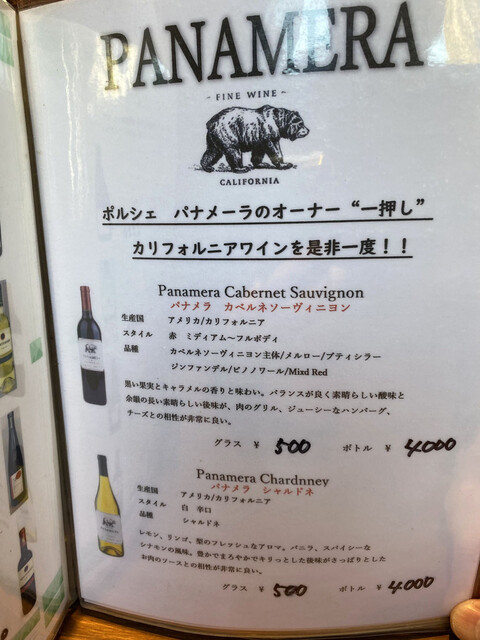 PANAMERA
- FINE WINE -
CALIFORNIA
ポルシェ パナメーラのオーナー“一押し”
カリフォルニアワインを是非一度！！
Panamera Cabernet Sauvignon
パナメラ カベルネソーヴィニヨン
生産国 アメリカ/カリフォルニア
スタイル 赤 ミディアム～フルボディ
品種 カベルネソーヴィニヨン主体/メルロー/プティシラー
ジンファンデル/ピノノワール/Mixd Red
黒い果実とキャラメルの香りと味わい。バランスが良く素晴らしい酸味と
余韻の長い素晴らしい後味が、肉のグリル、ジューシーなハンバーグ、
チーズとの相性が非常に良い。
グラス ¥ 500 ボトル ¥ 4000
Panamera Chardnney
パナメラ シャルドネ
生産国 アメリカ/カリフォルニア
スタイル 白 辛口
品種 シャルドネ
レモン、リンゴ、梨のフレッシュなアロマ。バニラ、スパイシーな
シナモンの風味。豊かでまろやかでキリっとした後味がさっぱりとした
お肉のソースとの相性が非常に良い。
グラス ¥ 500 ボトル ¥ 4.000